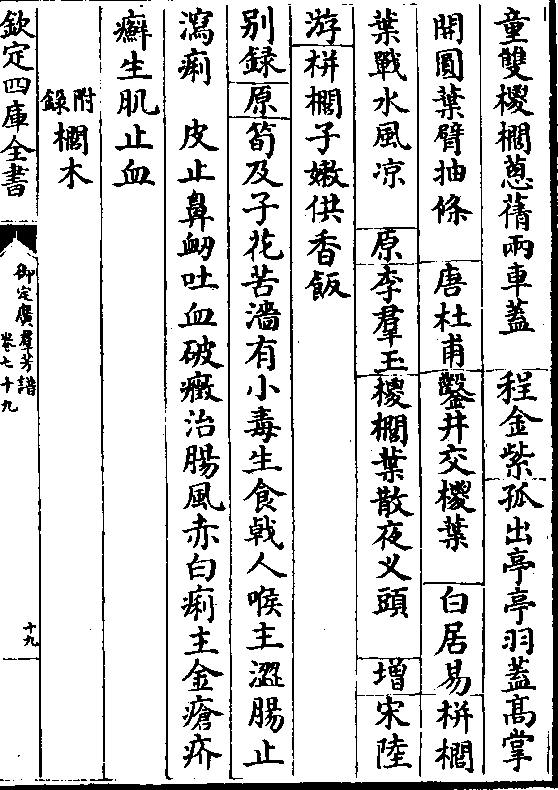 童雙椶櫚蔥蒨兩車蓋　程金紫孤出亭亭羽蓋髙掌
開圓葉臂抽條　唐杜甫鑿井交椶葉　白居易栟櫚
葉戰水風凉　原李羣玉椶櫚葉散夜乂頭　增宋陸
游栟櫚子嫩供香飯
别録原筍及子花苦濇有小毒生食戟人喉主澀腸止
瀉痢　皮止鼻衂吐血破癥治腸風赤白痢主金瘡疥
癬生肌止血
附録櫚木
欽定四庫全書
御定廣羣芳譜
卷七十九
十九